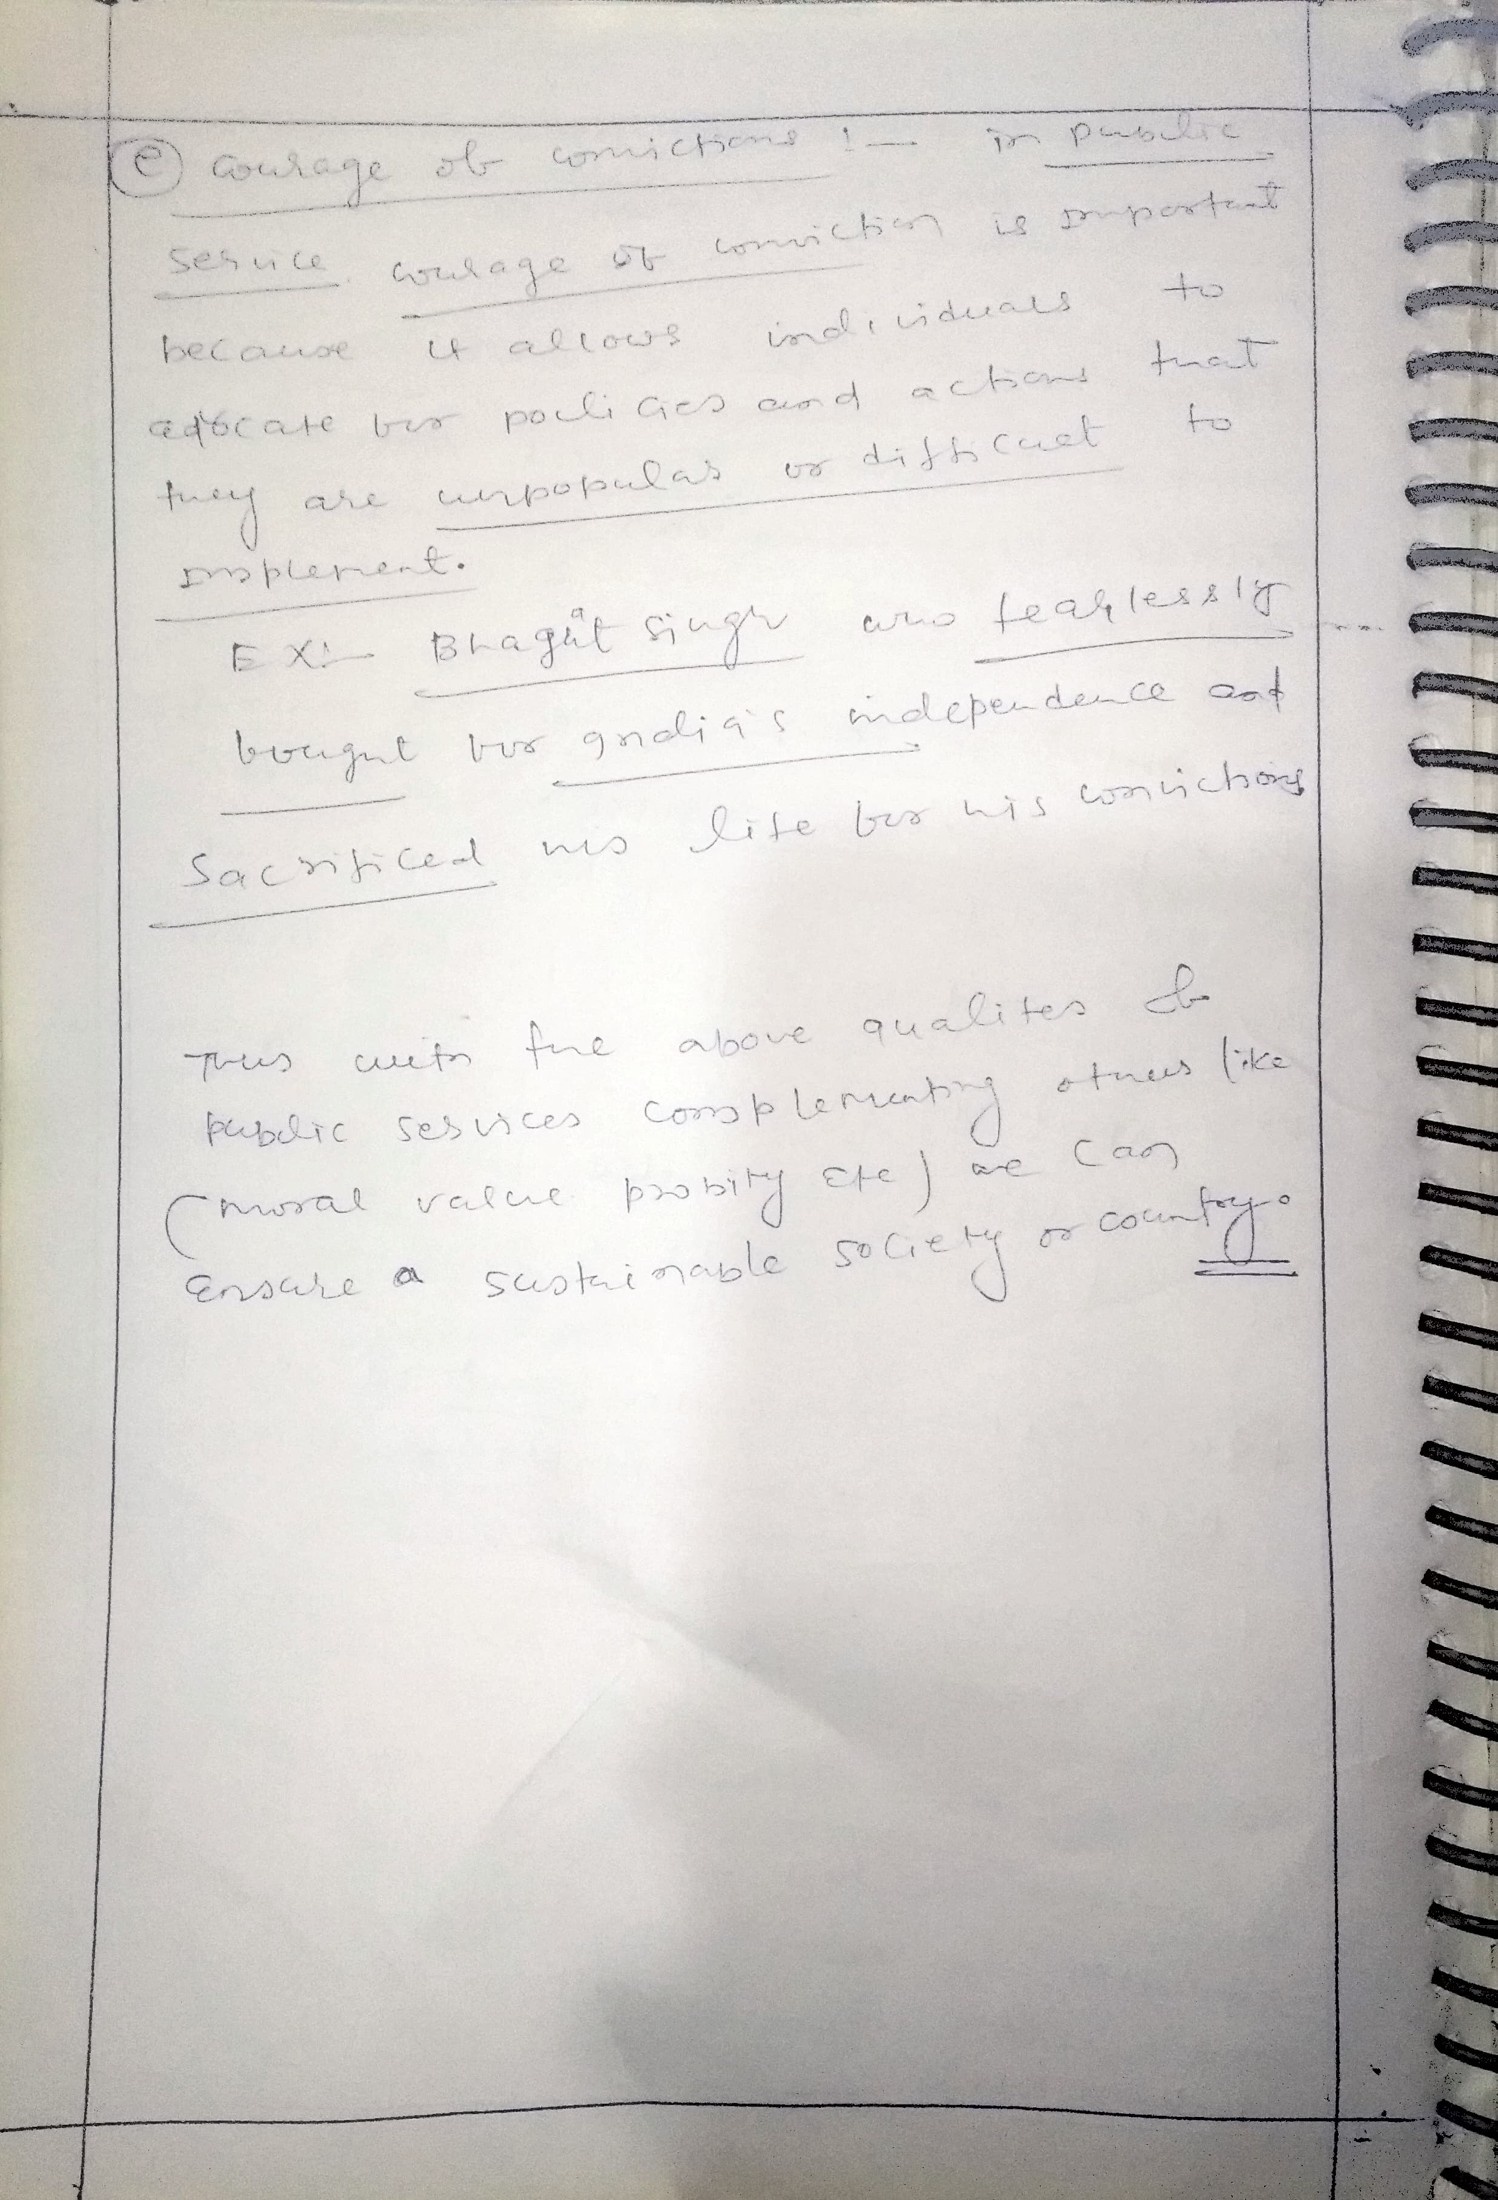 (e) Courage of convictions :- in public
service courage of conviction is important
because it allows individuals to
adocate for policies and actions that
they are unpopular or difficult to
implement.
EX:- Bhagat Singh who fearlessly
fought for India's independence and
sacrificed his life for his convictions
Thus with the above qualites of
public services complementing others like
(moral value probity etc) we can
ensure a sustainable society or country.